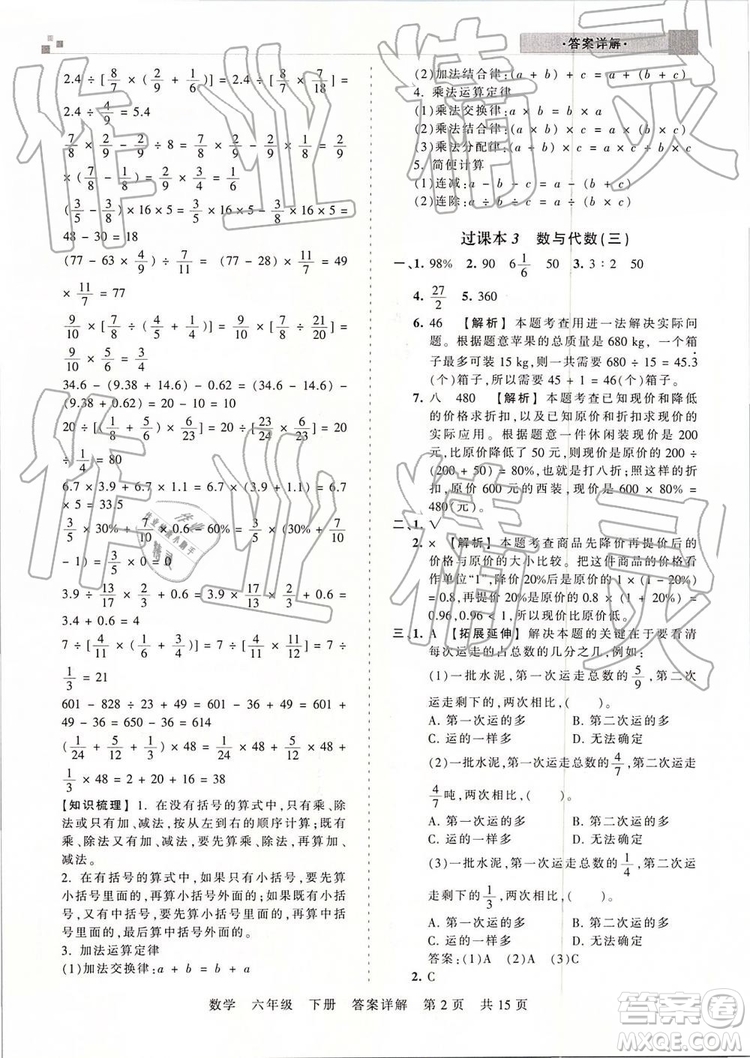 ·答案详解·
2.4 ÷ [8/7 × (7/8 - 7/9)] = 2.4 ÷ [8/7 × 7/18] =
2.4 ÷ 4/9 = 5.4
2/9 × 7/8 - 2/9 ÷ 8/7 = 2/9 × 7/8 - 1/8 × 2/9 = 2/9
× (7/8 - 1/8) = 2/9 × 3/4 = 1/6
(3/5 - 3/8) × 16 × 5 = 3/5 × 16 × 5 - 3/8 × 16 × 5 =
48 - 30 = 18
(77 - 0.77) ÷ 0.11 = 77 ÷ 0.11 - 0.77 ÷ 0.11 =
× 11/7 = 77
9/10 × [7/8 ÷ (4/5 + 1/4)] = 9/10 × [7/8 ÷ 21/20] =
9/10 × 5/6 = 3/4
34.6 - (9.38 + 14.6) - 0.62 = (34.6 - 14.6) -
(9.38 + 0.62) = 20 - 10 = 10
20 ÷ [(1/8 + 1/5) × 6/23] = 20 ÷ [13/40 × 6/23]
6.7 × 3.9 + 1.1 × 6.7 = 6.7 × (3.9 + 1.1) = 6.7
× 5 = 33.5
3.4 + 0.6 = 4
7 ÷ [4/11 × (3/4 - 1/6)] = 7 ÷ [4/11 × 7/12] = 7 ÷
1/3 = 21
601 - 828 ÷ 23 + 49 = 601 - 36 + 49 = 614
(1/24 + 5/12 + 1/6) × 48 = 1/24 × 48 + 5/12 × 48 +
【知识梳理】1. 在没有括号的算式中,只有乘、除
法或只有加、减法,按从左到右的顺序计算;有
乘、除法又有加、减法,要先算乘、除法,再算加、
减法。
2. 在有括号的算式中,要先算小括号里面的,再
算小括号外面的;既有小括号又有中括号,先算
小括号里面的,再算中括号里面的,最后算中括号外面的。
3. 加法运算定律
(1)加法交换律:a + b = b + a
(2)加法结合律:(a + b) + c = a + (b + c)
4. 乘法运算定律
(1)乘法交换律:a × b = b × a
(2)乘法结合律:(a × b) × c = a × (b × c)
(3)乘法分配律:(a + b) × c = a × c + b × c
5. 简便计算
(1)连减:a - b - c = a - (b + c)
(2)连除:a ÷ b ÷ c = a ÷ (b × c)
过课本 3 数与代数(三)
一、1. 98% 2. 90 6 1/6 50 3. 3∶2 50
4. 27/2 5. 360
6. 46 【解析】本题考查用进一法解决实际问
题。根据题意苹果的总质量是 680 kg,一个箱
子最多可装 15 kg,则一共需要 680 ÷ 15 = 45.3
(个)箱子,所以需要 45 + 1 = 46(个)箱子。
7. 八 480 【解析】本题考查已知现价和降低
的价格求折扣,以及已知原价和折扣求现价的
实际应用。根据题意一件休闲装现价是 200
元,比原价降低了 50 元,则现价是原价的 200
÷ (200 + 50) = 80%,也就是打八折;按照此折
扣,原价 600 元的西装,现价是 600 × 80% =
480(元)。
二、1. √
2. × 【解析】本题考查商品先降价再提价后的
价格与原价的大小比较。把这件商品的价格看
作单位“1”,降价 20%后是原价的 1 × (1 - 20%)
= 0.8,再提价 15%后是原价的 0.8 × (1 + 15%)
= 0.92, 0.92 < 1,所以现价比原价低。
三、1. A 【拓展延伸】解决本题的关键在于要看清
每次运走的占总数的几分之几,例如:
(1)一批水泥,第一次运走总数的 5/9,第二次
运走剩下的,两次相比,( )。
A. 第一次运的多 B. 第二次运的多
C. 运的一样多 D. 无法确定
(2)一批水泥,第一次运走总数的 4/7,第二次运走
4/7 吨,两次相比,( )。
A. 第一次运的多 B. 第二次运的多
C. 运的一样多 D. 无法确定
(3)一批水泥,第一次运走总数的 1/4,第二次运
走剩下的 1/3,两次相比,( )。
A. 第一次运的多 B. 第二次运的多
C. 运的一样多 D. 无法确定
答案:(1)A (2)D (3)C
2. C
数学 六年级 下册 答案详解 第 2 页 共 15 页
作业
精灵
作业
精灵